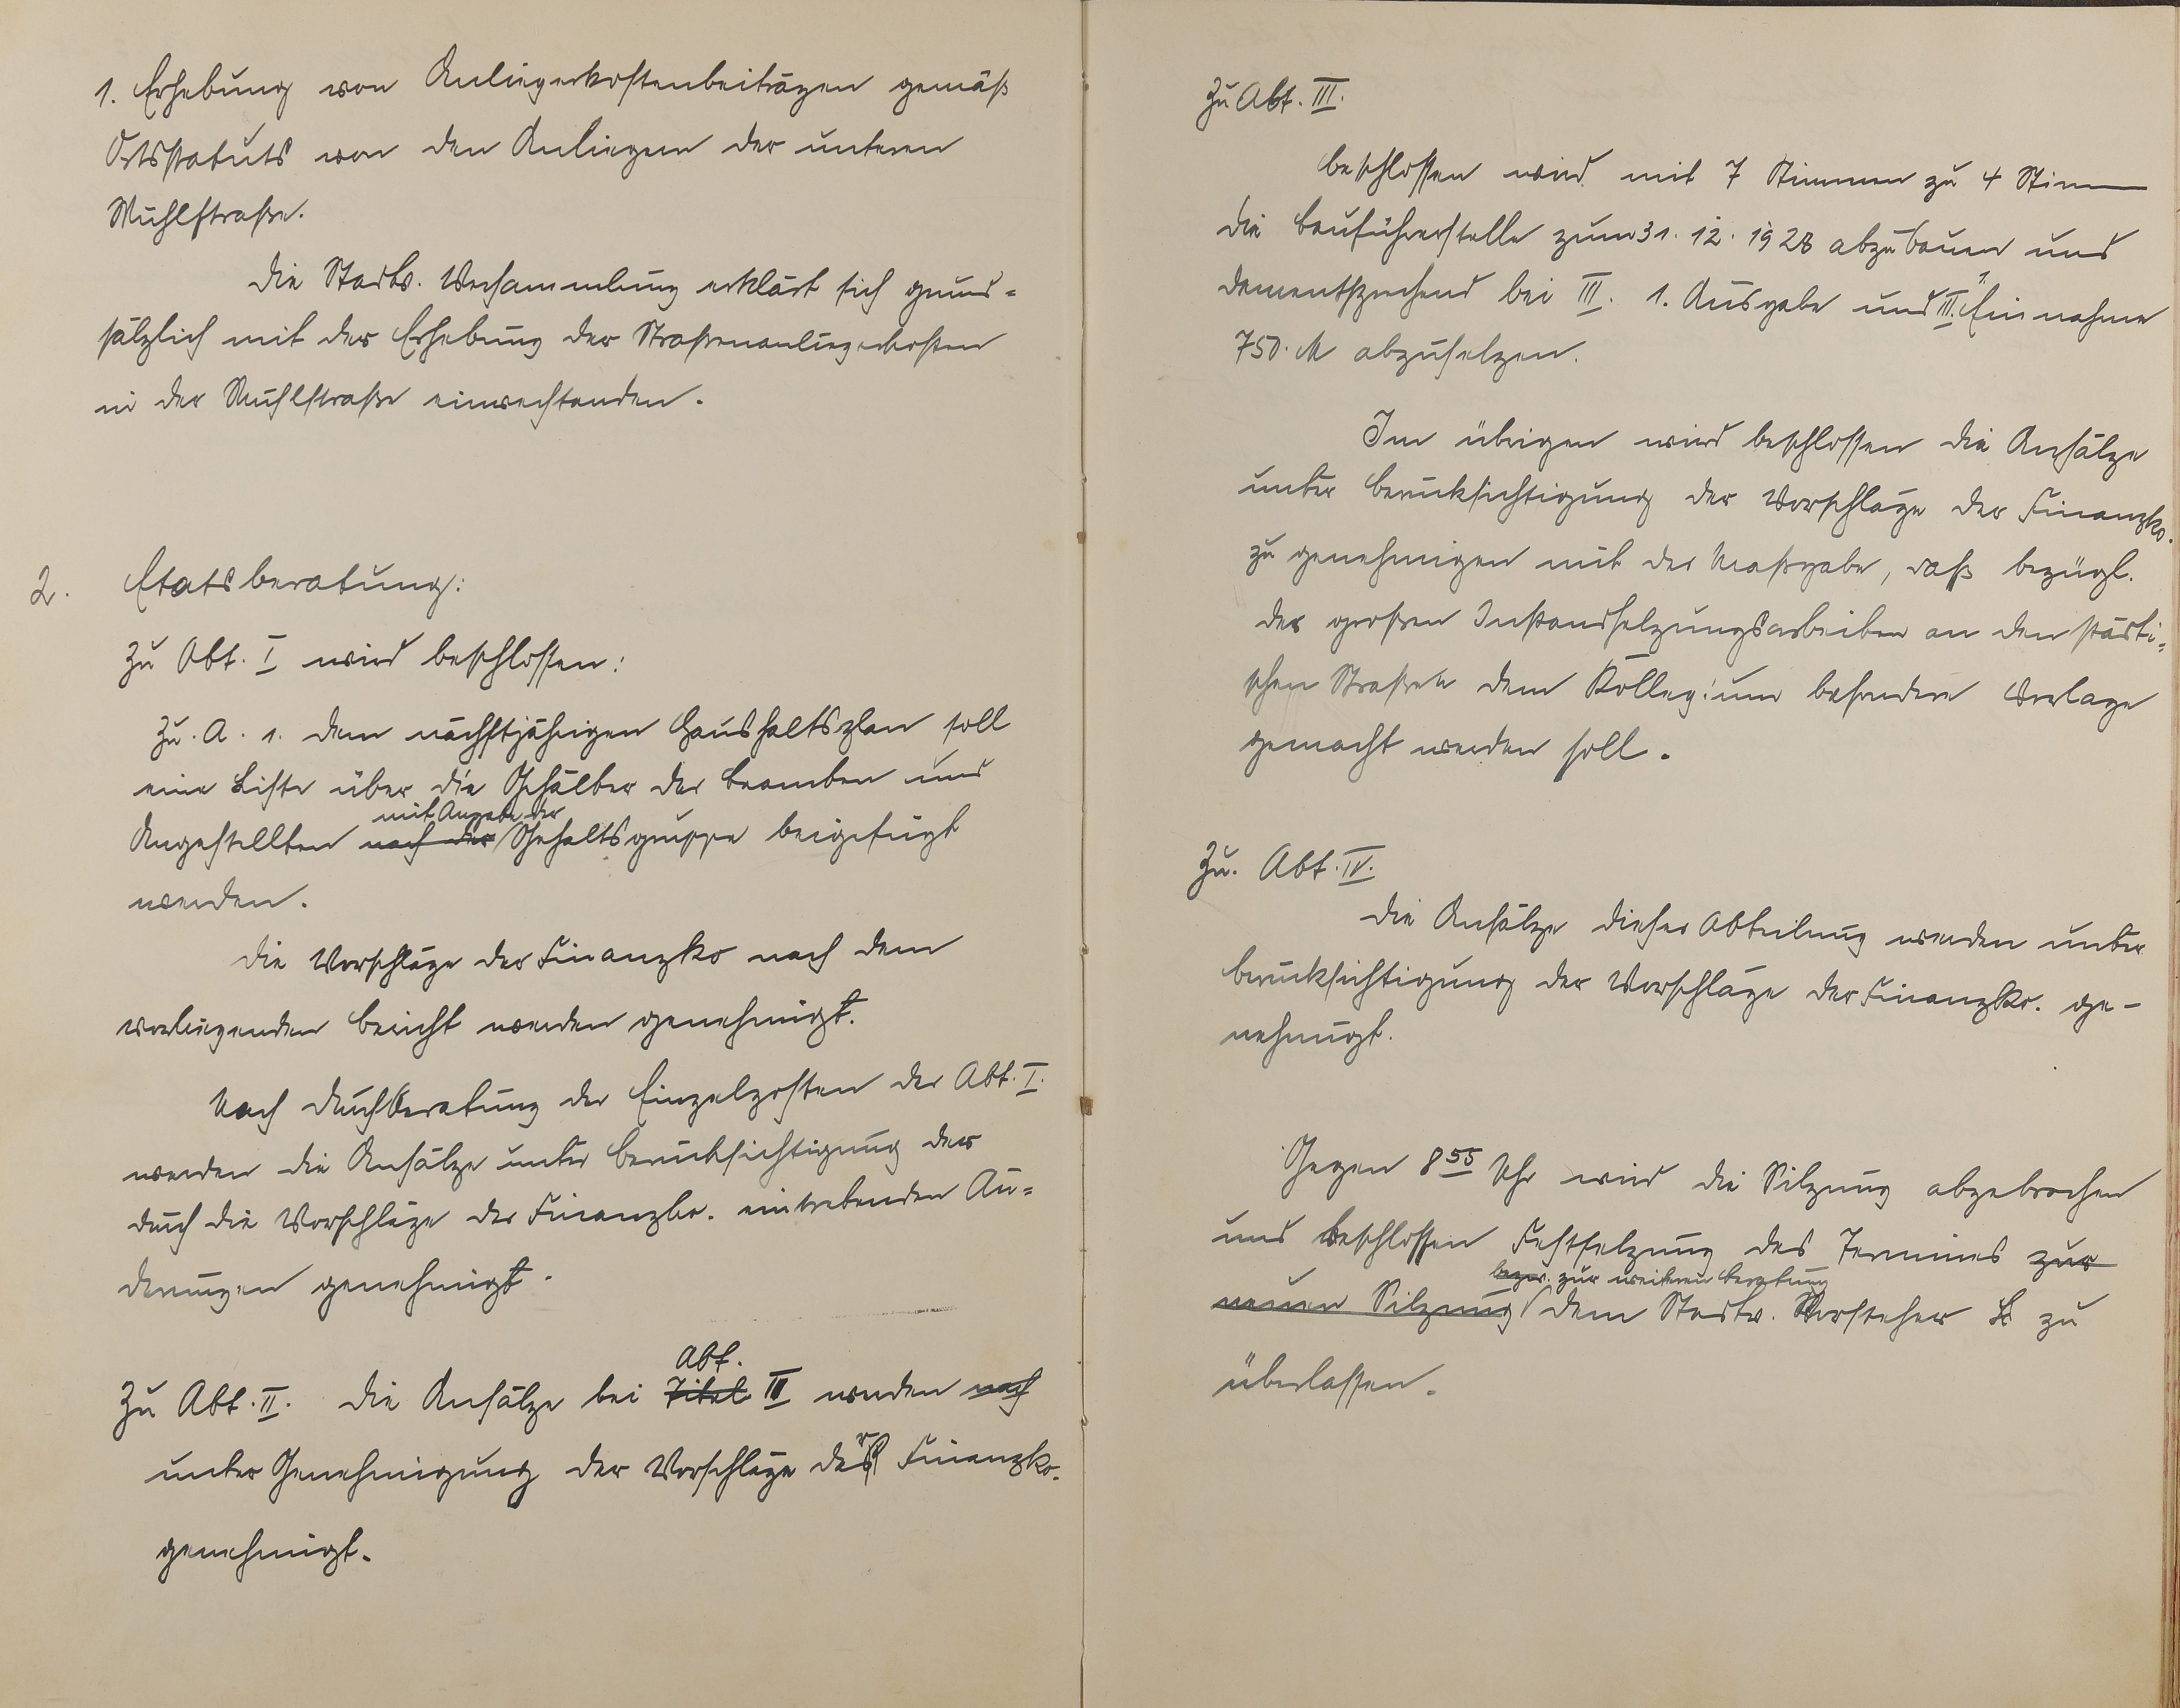 1. Erhebung von Anliegerkostenbeiträgen gemäß
Ortsstatuts von den Anliegern der unteren
Mühlstraße.
Die Stadtv. Versammlung erklärt sich grund=
sätzlich mit der Erhebung der Straßenanliegerkosten
in der Mühlstraße einverstanden.
2. Etatsberatung:
Zu Abt. I wird beschlossen:
Zu. A. 1. dem nächstjährigen Haushaltsplan soll
eine Liste über die Gehälter der Beamten und
mit Angabe der
Angestellten nach der Gehaltsgruppe beigefügt
werden.
Die Vorschläge der Finanzko nach dem
vorliegenden Bericht werden genehmigt.
Nach Durchberatung der Einzelposten der Abt. I.
werden die Ansätze unter Berücksichtigung der
durch die Vorschläge der Finanzko. eintretenden Än=
derungen genehmigt.
Abt.
Zu Abt. II. Die Ansätze bei Titel II werden nach
unter Genehmigung der Vorschläge der Finanzko.
genehmigt.
Zu Abt. III.
Beschlossen wird mit 7 Stimmen zu 4 Stimm
die Bauführerstelle zum 31. 12. 1928 abzubauen und
dementsprechend bei III. 1. Ausgabe und III. 1 Einnahme
750. M abzusetzen.
Im übrigen wird beschlossen die Ansätze
unter Berücksichtigung der Vorschläge der Finanzko.
zu genehmigen mit der Maßgabe, daß bezügl.
der großen Instandsetzungsarbeiten an den städti=
schen Straßen dem Kollegium besondere Vorlage
gemacht werden soll.
Zu. Abt. IV.
Die Ansätze dieser Abteilung werden unter
Berücksichtigung der Vorschläge der Finanzko. ge-
nehmigt.
Gegen 8 55 Uhr wird die Sitzung abgebrochen
und beschlossen Festsetzung des Termines zur
bezw. zur weiteren Beratung
neuen Sitzung dem Stadtv. Vorsteher zu
überlassen.